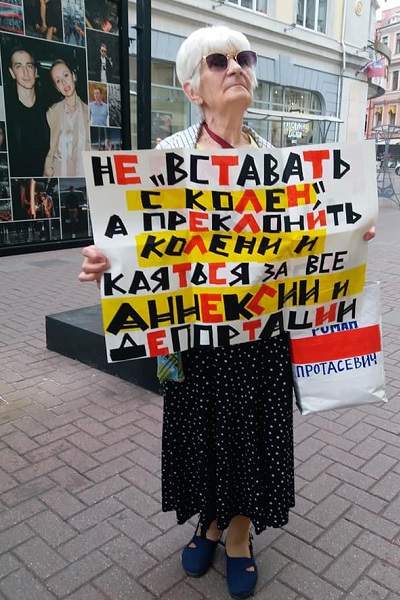 НЕ „ВСТАВАТЬ
С КОЛЕН",
А ПРЕКЛОНИТЬ
КОЛЕНИ И
КАЯТЬСЯ ЗА ВСЕ
АННЕКСИИ И
ДЕПОРТАЦИИ
РОМАН
ПРОТАСЕВИЧ